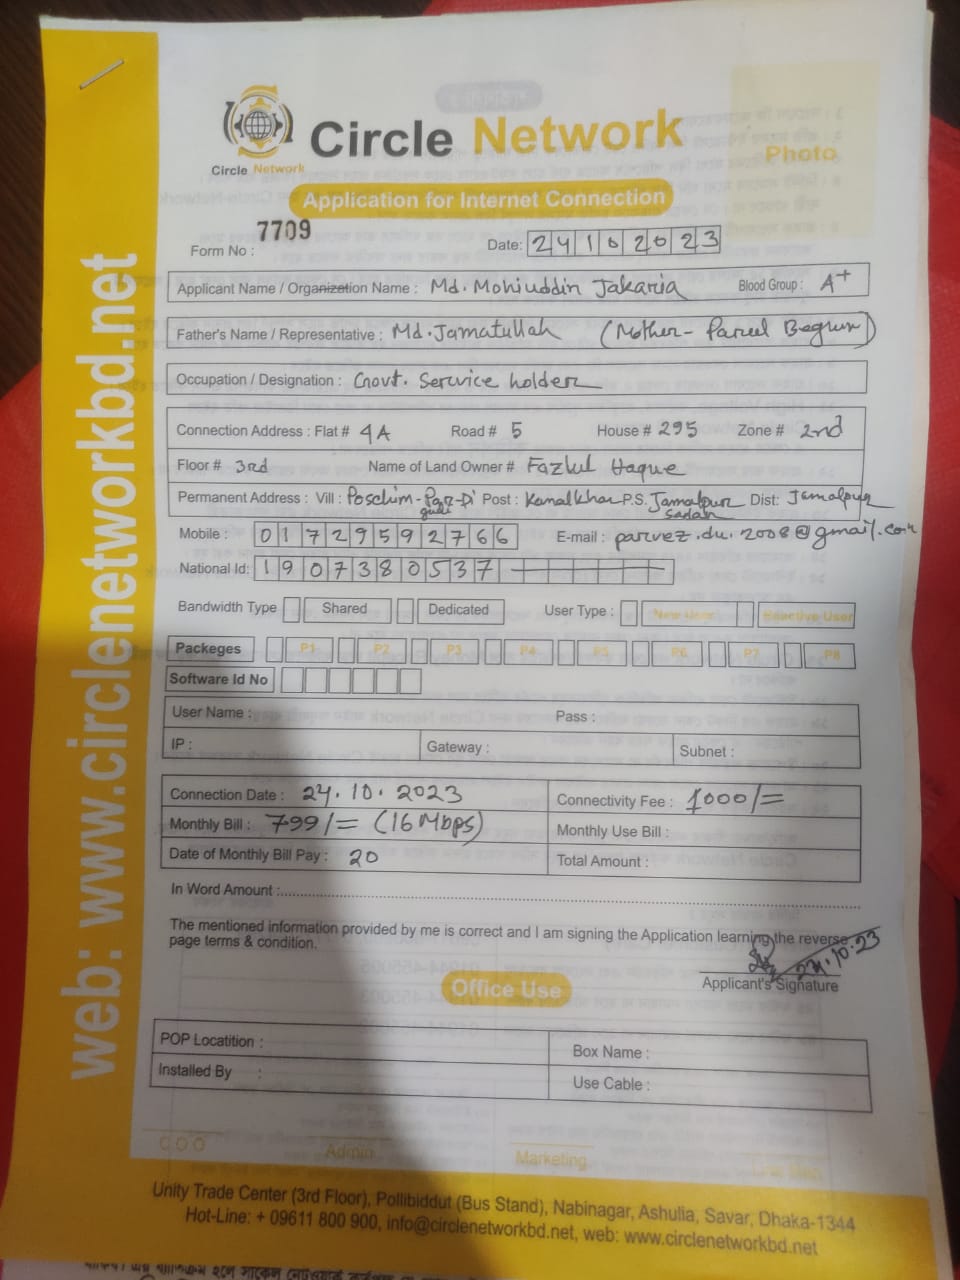 web: www.circlenetworkbd.net
Circle Network
Circle Network
Photo
Application for Internet Connection
Form No : 7709
Date: 24102023
Applicant Name / Organization Name : Md. Mohiuddin Jakaria Blood Group : A+
Father's Name / Representative : Md. Jamatullah (Mother- Parul Begum)
Occupation / Designation : Govt. Service holder
Connection Address : Flat # 4A Road # 5 House # 295 Zone # 2nd
Floor # 3rd Name of Land Owner # Fazlul Haque
Permanent Address : Vill : Poschim-Par-Di Post : Kamalkhan P.S. Jamalpur Dist: Jamalpur
guli sadar
Mobile : 01729592766 E-mail : parvez.du.2008@gmail.com
National Id: 1907380537
Bandwidth Type Shared Dedicated User Type : New User Reactive User
Packeges P1 P2 P3 P4 P5 P6 P7 P8
Software Id No
User Name : Pass :
IP : Gateway : Subnet :
Connection Date : 24.10.2023 Connectivity Fee : 1000/=
Monthly Bill : 799/= (16 Mbps) Monthly Use Bill :
Date of Monthly Bill Pay : 20 Total Amount :
In Word Amount :
The mentioned information provided by me is correct and I am signing the Application learning the reverse
page terms & condition.
24.10.23
Applicant's Signature
Office Use
POP Locatition : Box Name :
Installed By : Use Cable :
COO Admin Marketing
Unity Trade Center (3rd Floor), Pollibiddut (Bus Stand), Nabinagar, Ashulia, Savar, Dhaka-1344
Hot-Line: + 09611 800 900, info@circlenetworkbd.net, web: www.circlenetworkbd.net